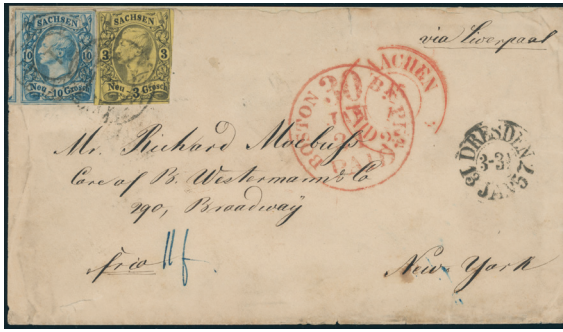 SACHSEN
10 10
Neu-10 Grosch
SACHSEN
3 3
Neu-3 Grosch
via Liverpool
AACHEN
BOSTON BR. PKT.
30
PAID
DRESDEN
3-3½
31 JAN 57
Mr. Richard Moebuss
Care of B. Westermann & Co
290, Broadway
New York